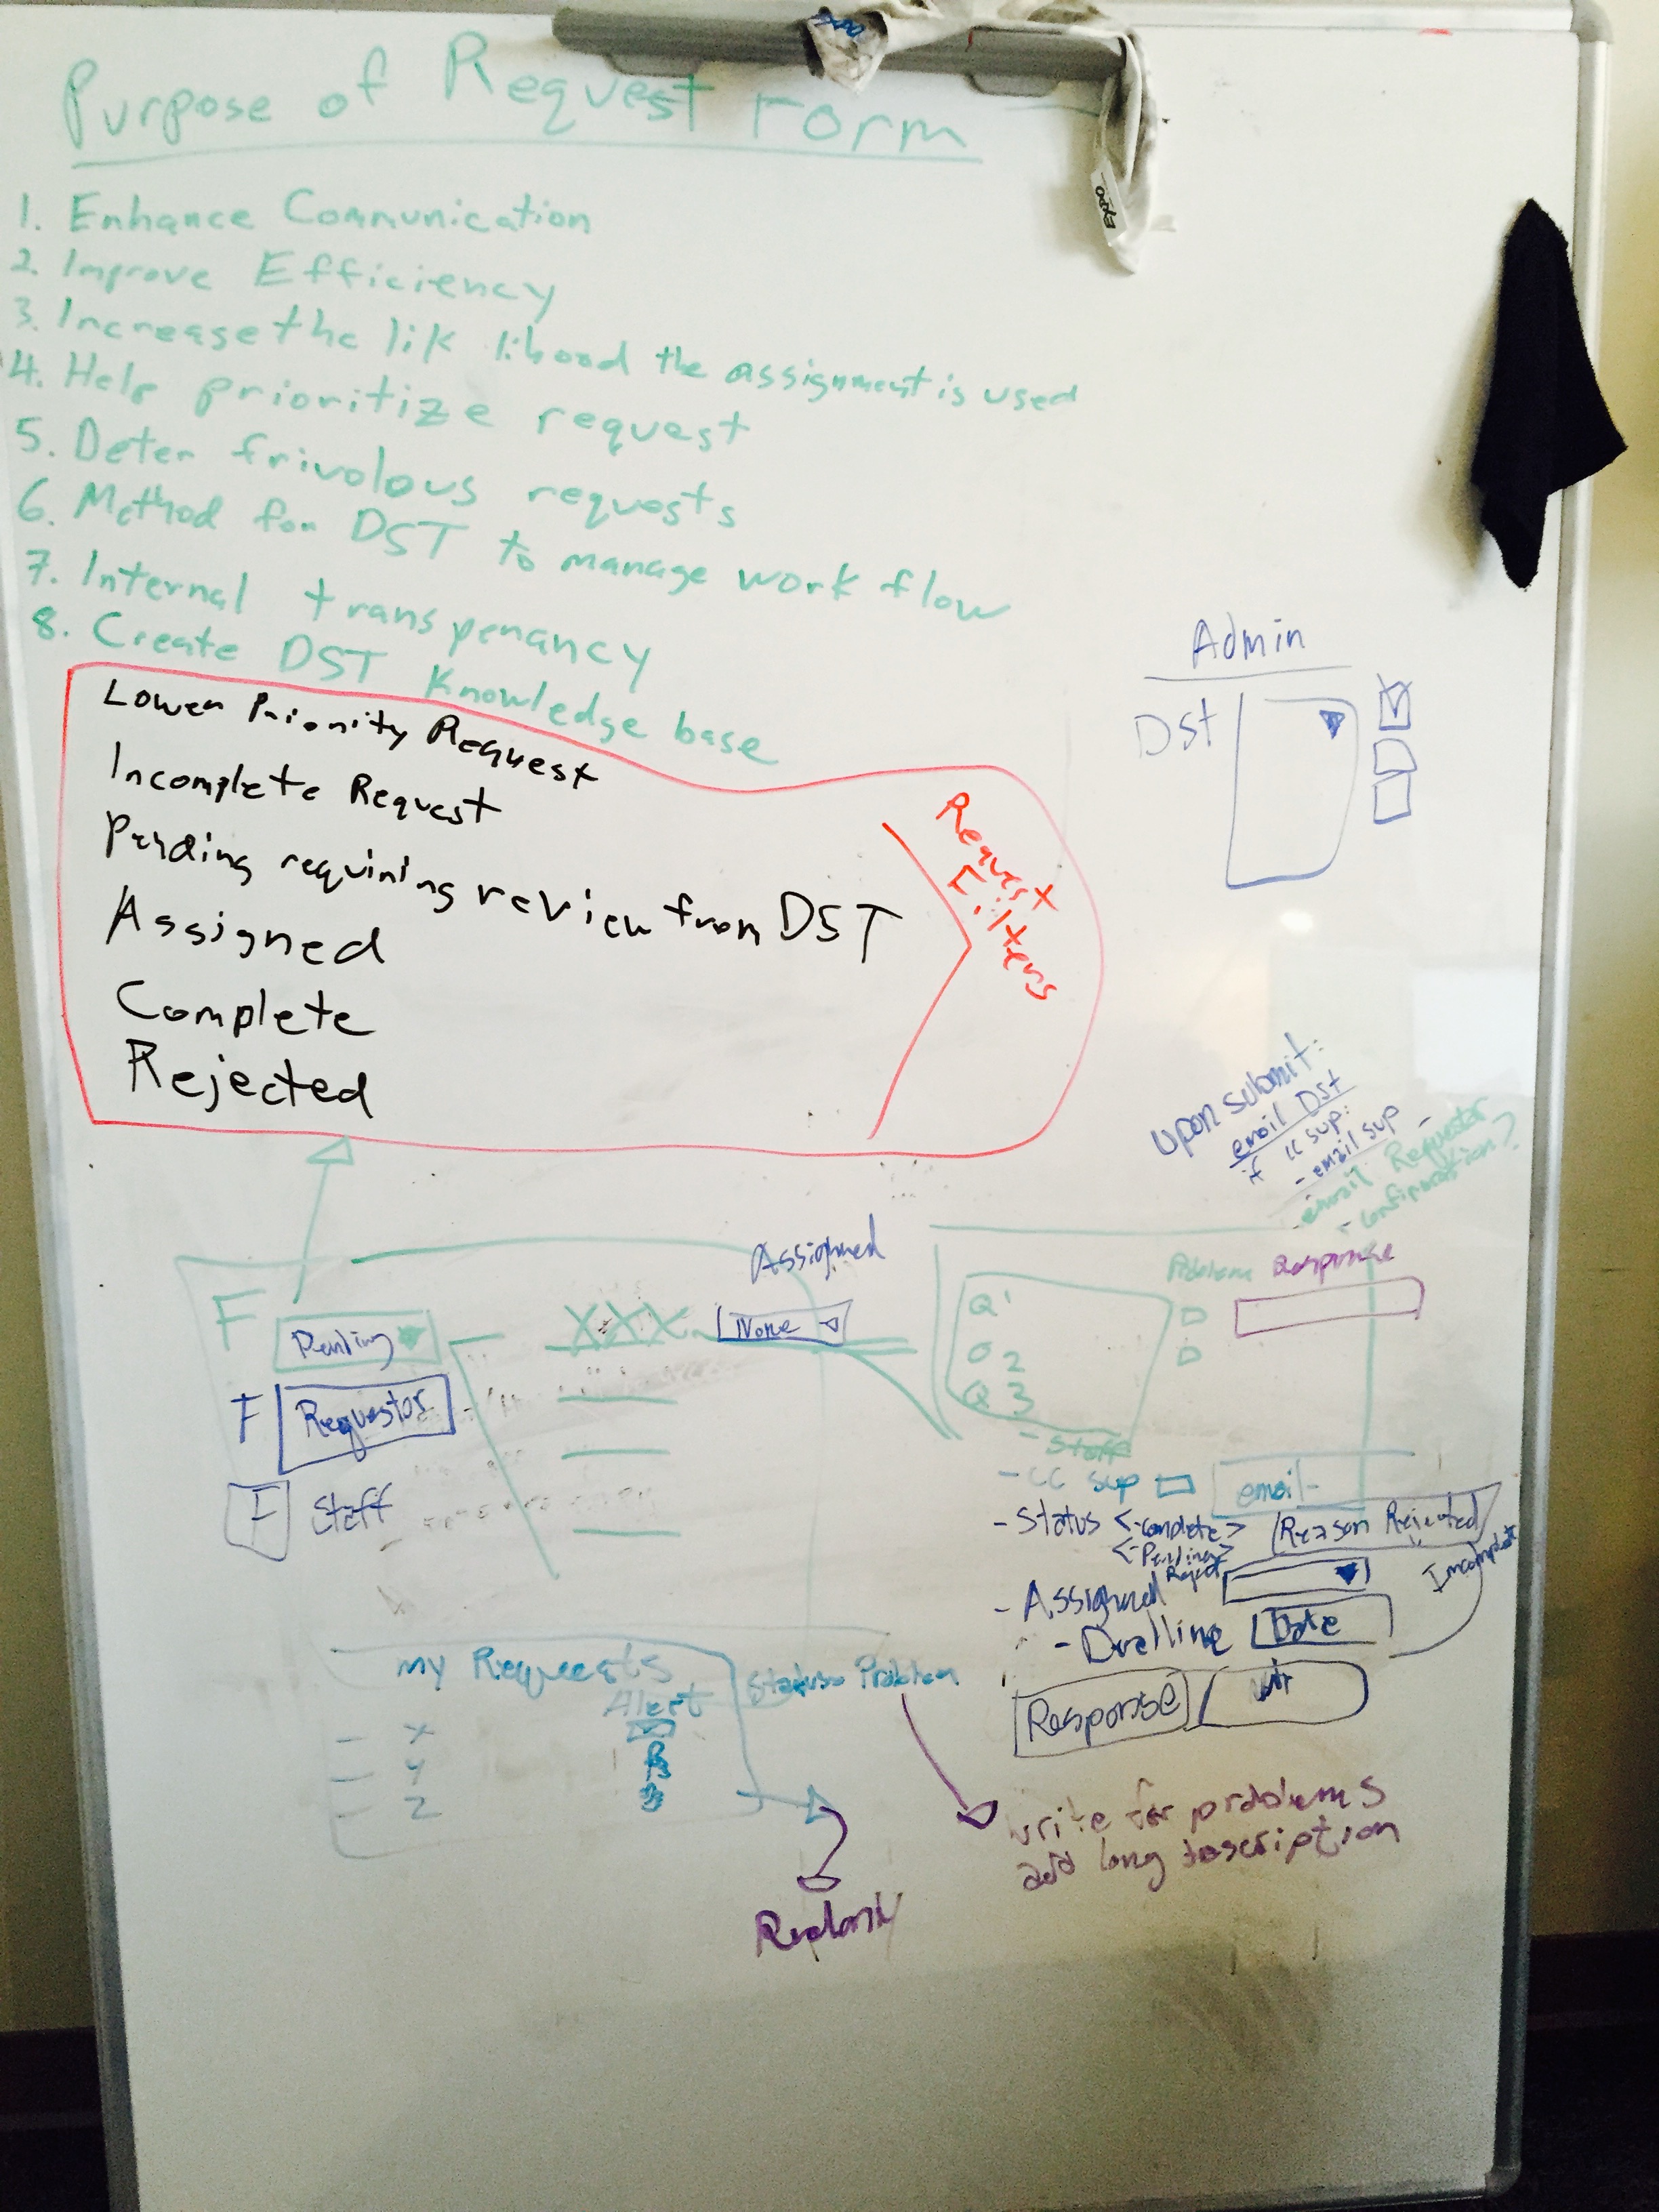 Purpose of Request Form
1. Enhance Communication
2. Improve Efficiency
3. Increase the lik lihood the assignment is used
4. Help prioritize request
5. Deter frivolous requests
6. Method for DST to manage work flow
7. Internal transpenancy
8. Create DST Knowledge base
Lower Priority Request
Incomplete Request
Pending requiring review from DST
Assigned
Complete
Rejected
Request
Filters
Admin
Dst
EXPO
upon submit:
email Dst
if cc sup:
- email sup
- email Requestor
- configuration?
Assigned
F Pending
XXX
None
F Requestor
F Staff
Problem Response
Q1
Q 2
Q 3
- Staff
- CC Sup
email
- Status <-complete>
<-Pending>
Reject
Reason Rejected
Incomplete
- Assigned
- Duelline Date
Response
my Requests
Alert
Status Problem
- X
- Y
- Z
write for problems
add long description